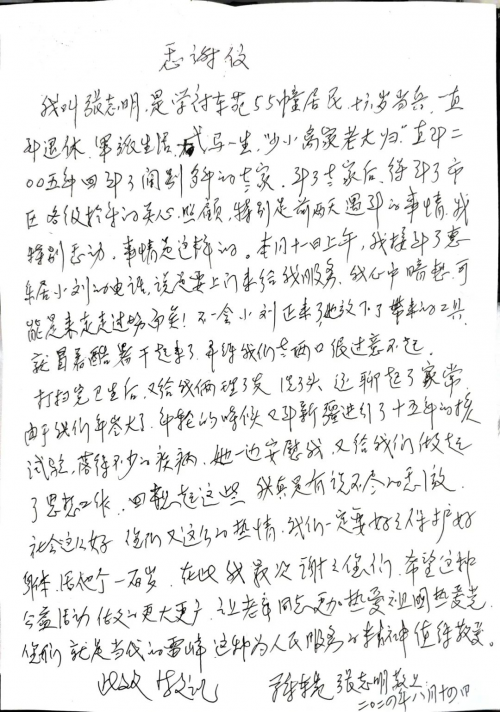 感谢信
我叫张志明，是学府东苑55幢居民，十六岁当兵，直
到退休，军旅生活，戎马一生，"少小离家老大归"直到二
00五年回到了阔别多年的老家，到了老家后，得到了市
区各级领导的关心，照顾，特别是前两天遇到的事情，我
特别感动，事情是这样的。本月十一日上午，我接到了惠
年居小刘的电话，说是要上门来给我服务，我心中暗想，可
能是来走走过场而矣！不一会小刘进来了她放下了带来的工具，
就冒着酷暑干起来了，弄得我们老两口很过意不起。
打扫完卫生后，又给我俩理了发，洗了头，还聊起了家常，
由于我们年老大了，年轻的时候又到新疆进行了十五年的核
试验，落得不少的疾病，她一边安慰我，又给我们做起
了思想工作，回想起这些，我真是有说不尽的感激，
社会这么好，您们又这么的热情，我们一定要好好保护好
身体，活他个一百岁，在此我最次谢谢您们，希望这种
公益活动做的更大更广，让老年同志更加热爱祖国热爱党。
您们就是当代的雷峰，这种为人民服务的精神值得敬爱。
此致 敬礼
张志明敬上
二〇二四年八月十四日